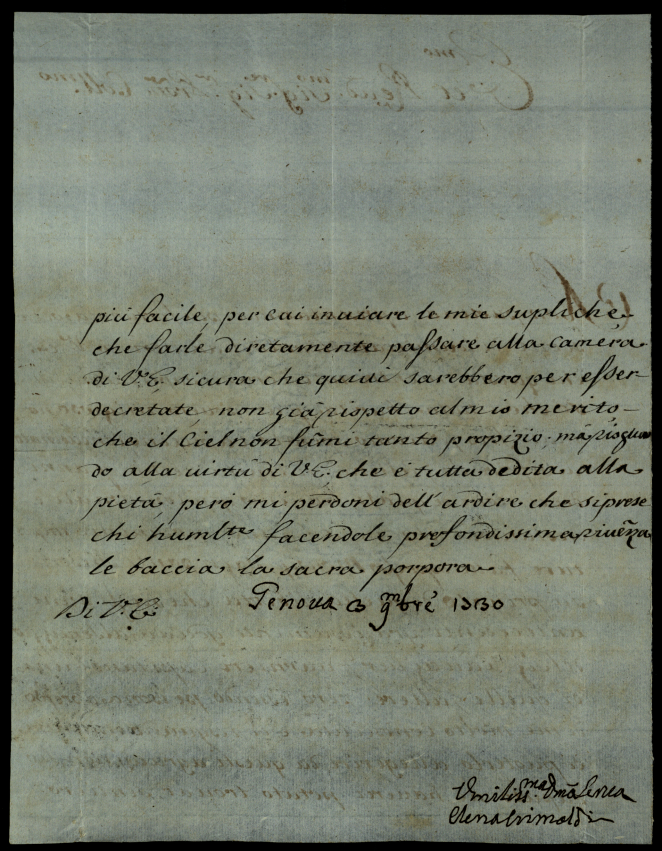 più facile, per cui inuiare le mie supliche
che farle diretamente passare alla camera
di V.E. sicura che quiui sarebbero per esser
decretate non già rispetto al mio merito
che il Ciel non fùmi tanto propizio; mà risguar
do alla uirtù di V.E. che è tutta dedita alla
pietà però mi perdoni dell'ardire che si prese
chi humlte facendole profondissima riuenza
le baccia la sacra porpora
Di V.E. Genoua 3 9mbre 1730
Vmilissma
Elena Grimaldi